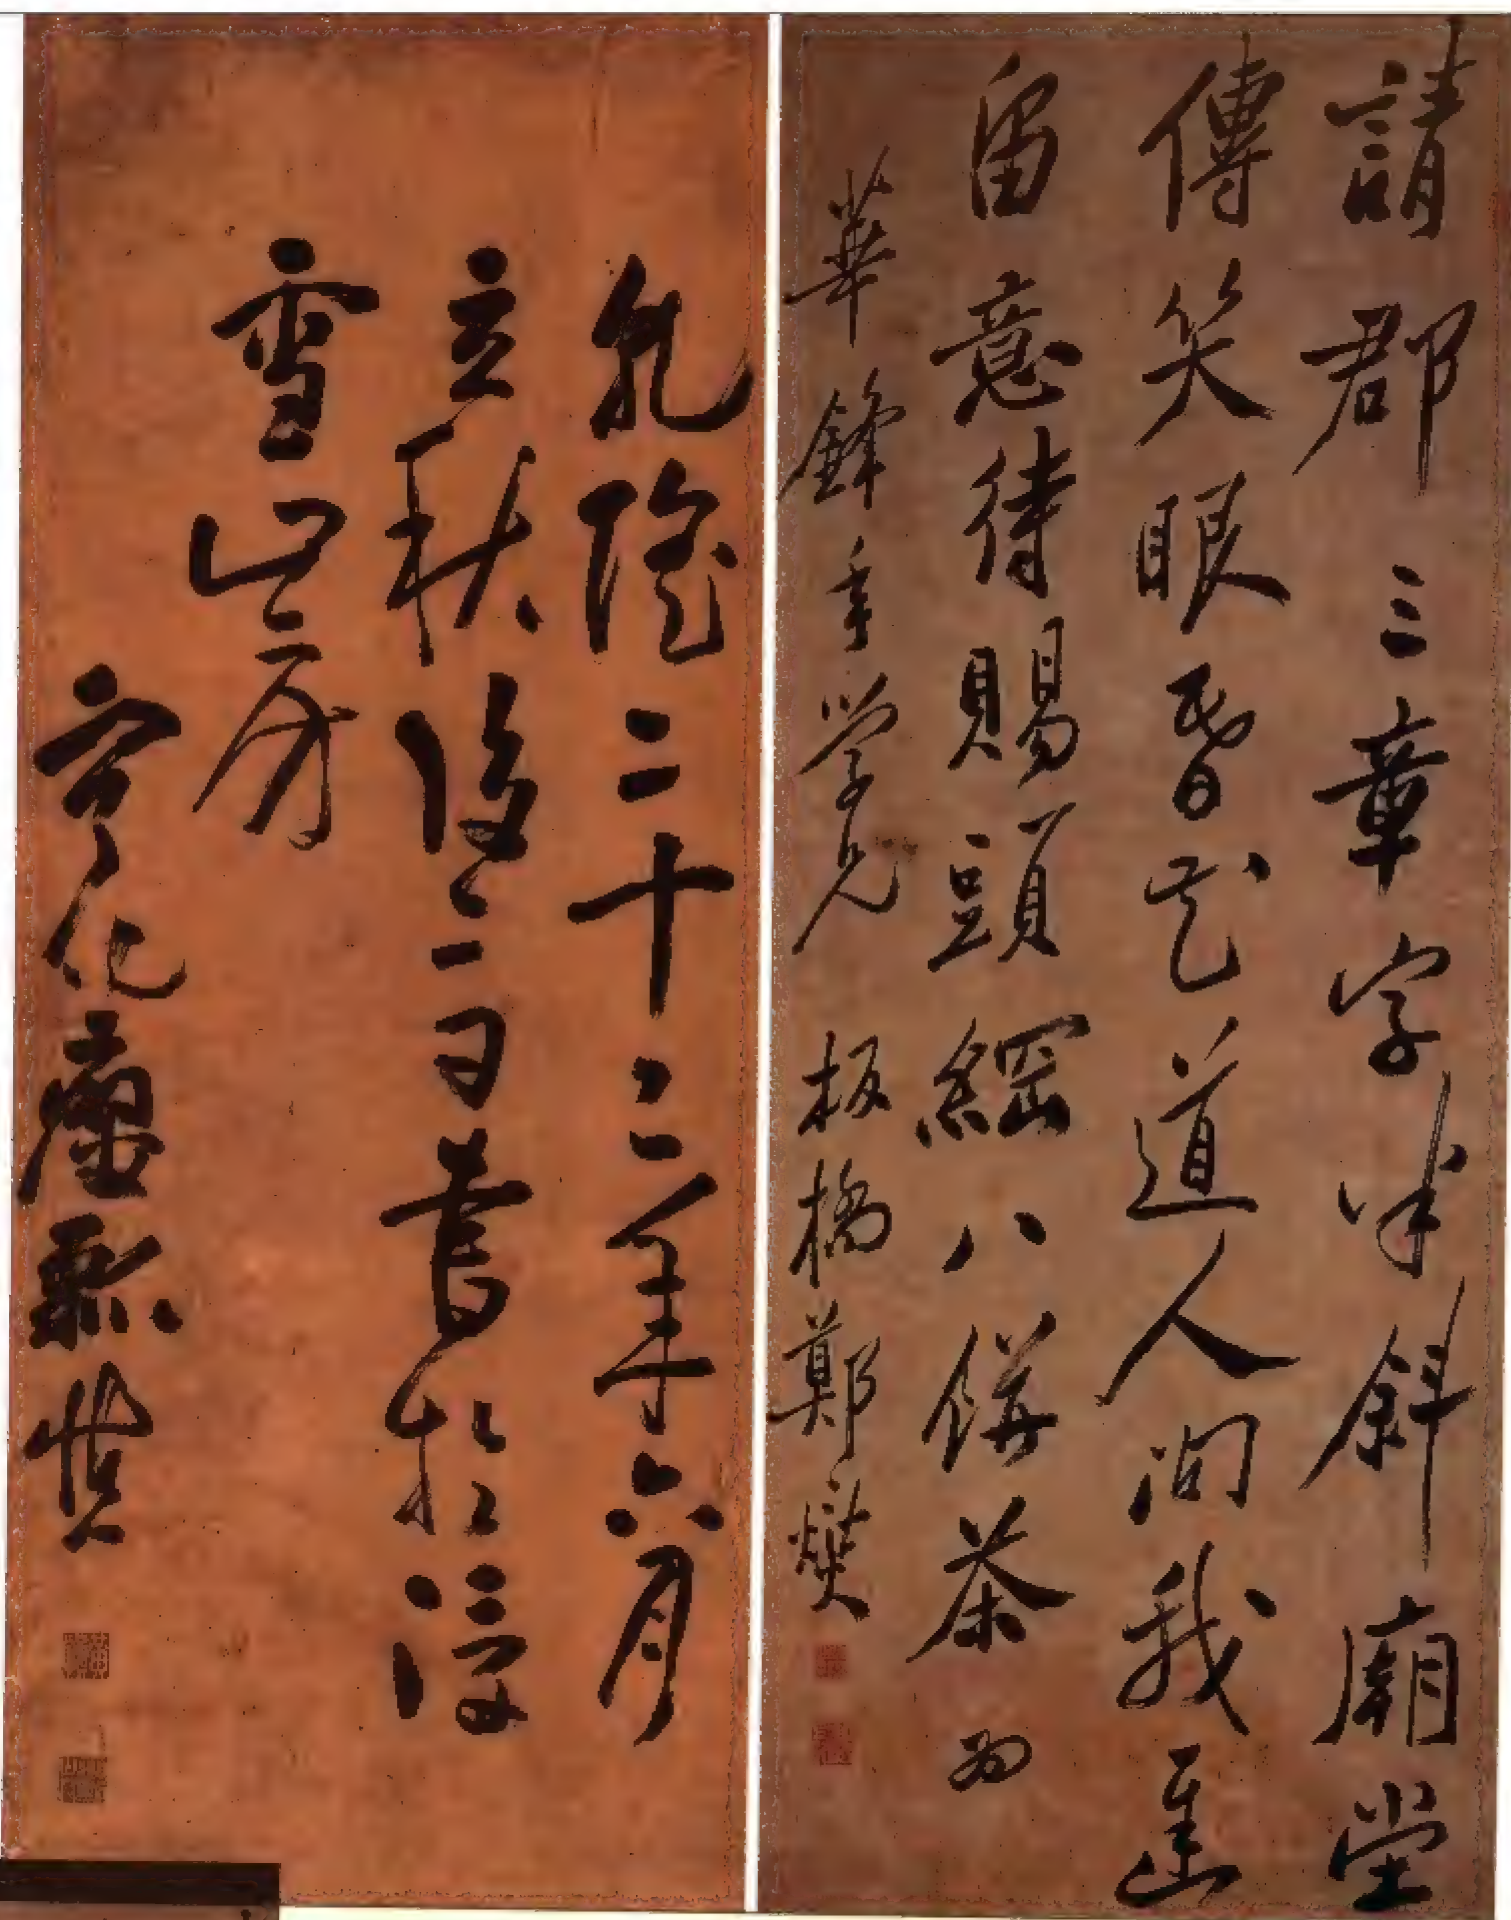 請郡三章字半斜廟堂
傳笑眼昏花道人問我遲
留意待賜頭綱八餅茶為
華鋒年学兄 板橋鄭燮
乾隆二十二年六月
立秋後二日書於
雪山房
寧化癭瓢慎